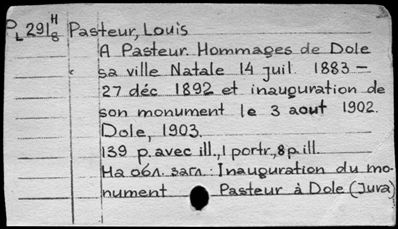 P L 291 H/8 Pasteur, Louis
A Pasteur. Hommages de Dole
sa ville Natale 14 juil. 1883 –
27 déc 1892 et inauguration de
son monument le 3 aout 1902.
Dole, 1903.
139 p. avec ill., 1 portr., 8 p. ill.
На обл. загл.: Inauguration du mo-
nument Pasteur à Dole (Jura)